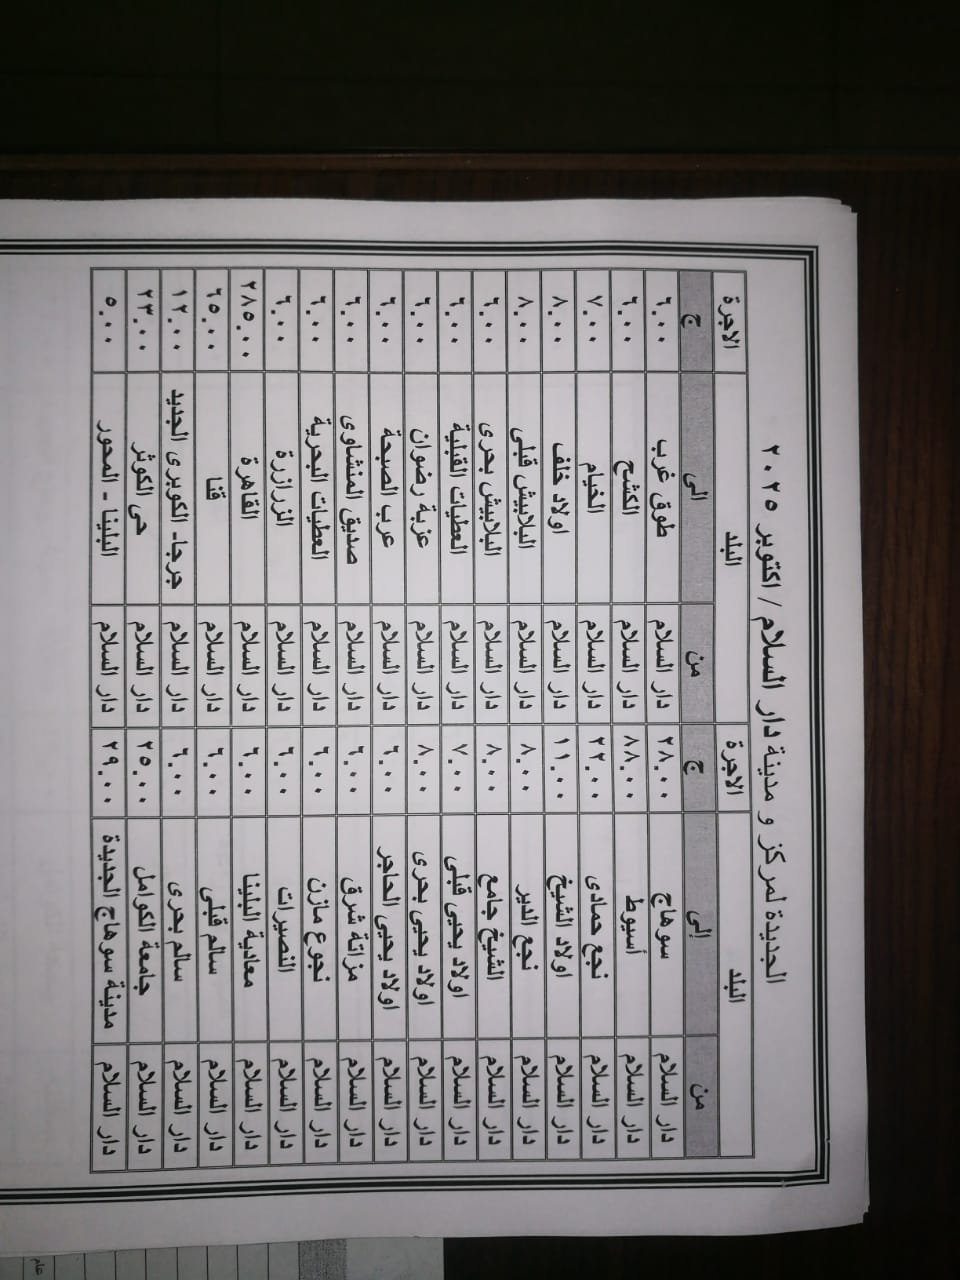 الجديدة لمركز و مدينة دار السلام / اكتوبر ٢٠٢٥
البلد الاجرة البلد الاجرة
من إلى ج من الى ج
دار السلام سوهاج ٢٨.٠٠ دار السلام طوق غرب ٦.٠٠
دار السلام أسيوط ٨٨.٠٠ دار السلام الكشح ٦.٠٠
دار السلام نجع حمادى ٢٢.٠٠ دار السلام الخيام ٧.٠٠
دار السلام اولاد الشيخ ١١.٠٠ دار السلام اولاد خلف ٨.٠٠
دار السلام نجع الدير ٨.٠٠ دار السلام البلابيش قبلى ٨.٠٠
دار السلام الشيخ جامع ٨.٠٠ دار السلام البلابيش بحرى ٦.٠٠
دار السلام اولاد يحيى قبلى ٧.٠٠ دار السلام العطيات القبلية ٦.٠٠
دار السلام اولاد يحيى بحرى ٨.٠٠ دار السلام عزبة رضوان ٦.٠٠
دار السلام اولاد يحيى الحاجر ٦.٠٠ دار السلام عرب الصبحة ٦.٠٠
دار السلام مزاتة شرق ٦.٠٠ دار السلام صديق المنشاوى ٦.٠٠
دار السلام نجوع مازن ٦.٠٠ دار السلام العطيات البحرية ٦.٠٠
دار السلام النصيرات ٦.٠٠ دار السلام الزرازرة ٦.٠٠
دار السلام معادية البلينا ٦.٠٠ دار السلام القاهرة ٢٨٥.٠٠
دار السلام سالم قبلى ٦.٠٠ دار السلام قنا ٦٥.٠٠
دار السلام سالم بحرى ٦.٠٠ دار السلام جرجا- الكوبرى الجديد ١٢.٠٠
دار السلام جامعة الكوامل ٢٥.٠٠ دار السلام حى الكوثر ٢٣.٠٠
دار السلام مدينة سوهاج الجديدة ٢٩.٠٠ دار السلام البلينا - المحور ٥.٠٠